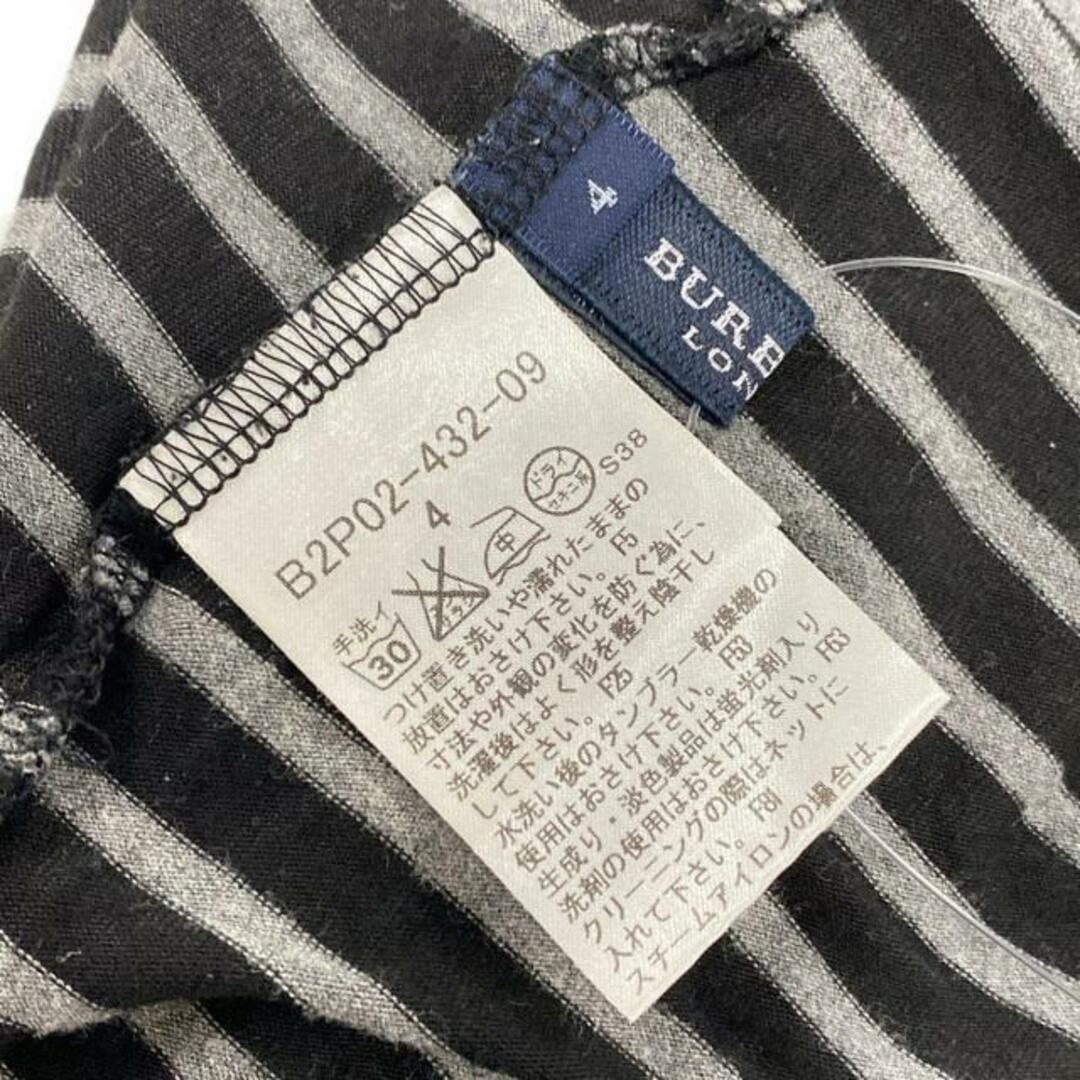 4
BURB
LON
B2P02-432-09
4
手洗イ
30
エンソサラシ
中
ドライ
セキユ系
S38
つけ置き洗いや濡れたままの
放置はおさけ下さい。 F5
寸法や外観の変化を防ぐ為に、
洗濯後はよく形を整え陰干し
して下さい。 F25
水洗い後のタンブラー乾燥機の
使用はおさけ下さい。 F53
生成り・淡色製品は蛍光剤入り
洗剤の使用はおさけ下さい。 F63
クリーニングの際はネットに
入れて下さい。 F81
スチームアイロンの場合は、